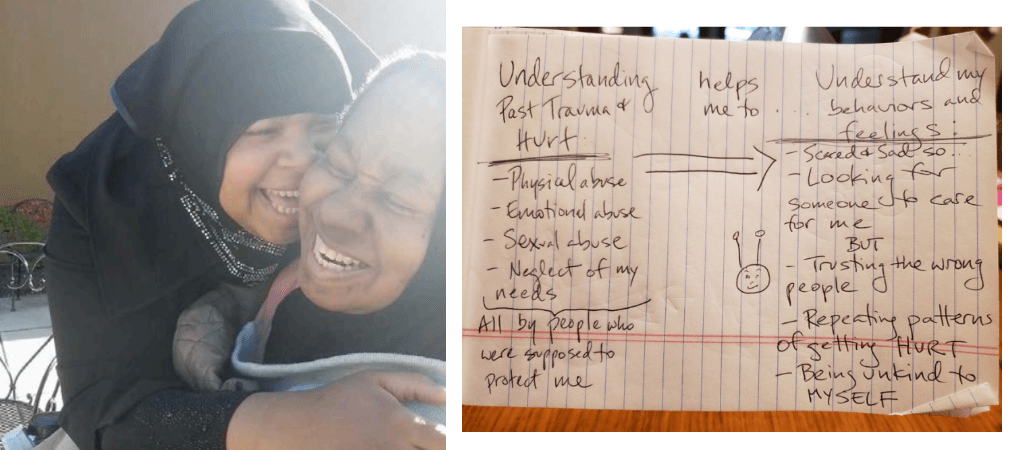 Understanding
Past Trauma &
Hurt
- Physical abuse
- Emotional abuse
- Sexual abuse
- Neglect of my
needs
All by people who
were supposed to
protect me
helps
me to ...
Understand my
behaviors and
feelings:
- Scared & Sad so...
- Looking for
someone to care
for me
BUT
- Trusting the wrong
people
- Repeating patterns
of getting HURT
- Being unkind to
MYSELF